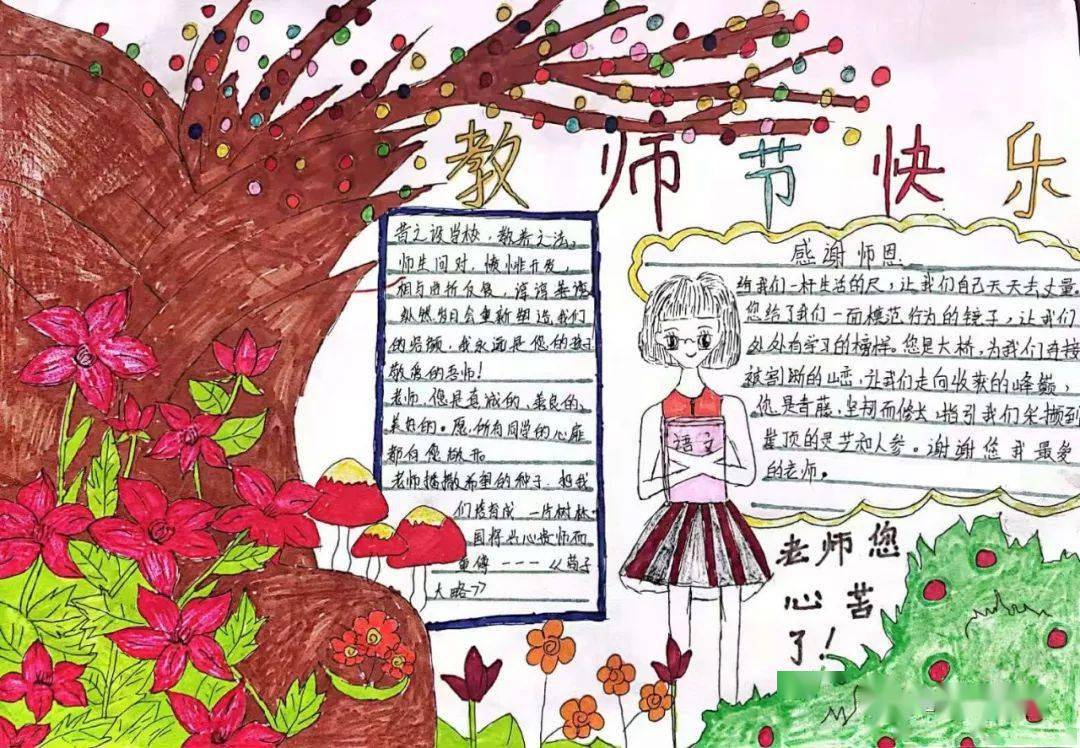 教师节快乐
昔之设学校，教养之法，
师生问对，愤悱开发，
相与曲折反复，谆谆
纵然岁月会重新塑造我们
的容颜，我永远是您的孩子
敬爱的吾师！
老师，您是真诚的，善良的，
美好的。愿所有同学的心扉
都向您敞开
老师播撒希望的种子，把我
们培育成一片树林
国将兴心贵师而
重傅 一一一《荀子
大略》
感谢师恩
给我们一杆生活的尺，让我们自己天天去丈量。
您给了我们一面模范行为的镜子，让我们
处处有学习的榜样。您是大桥，为我们连接
被割断的山峦，让我们走向收获的峰巅，
您是青藤，坚韧而修长，指引我们采撷到
崖顶的灵芝和人参。谢谢您我最爱
的老师。
语文
老师您
心苦
了！